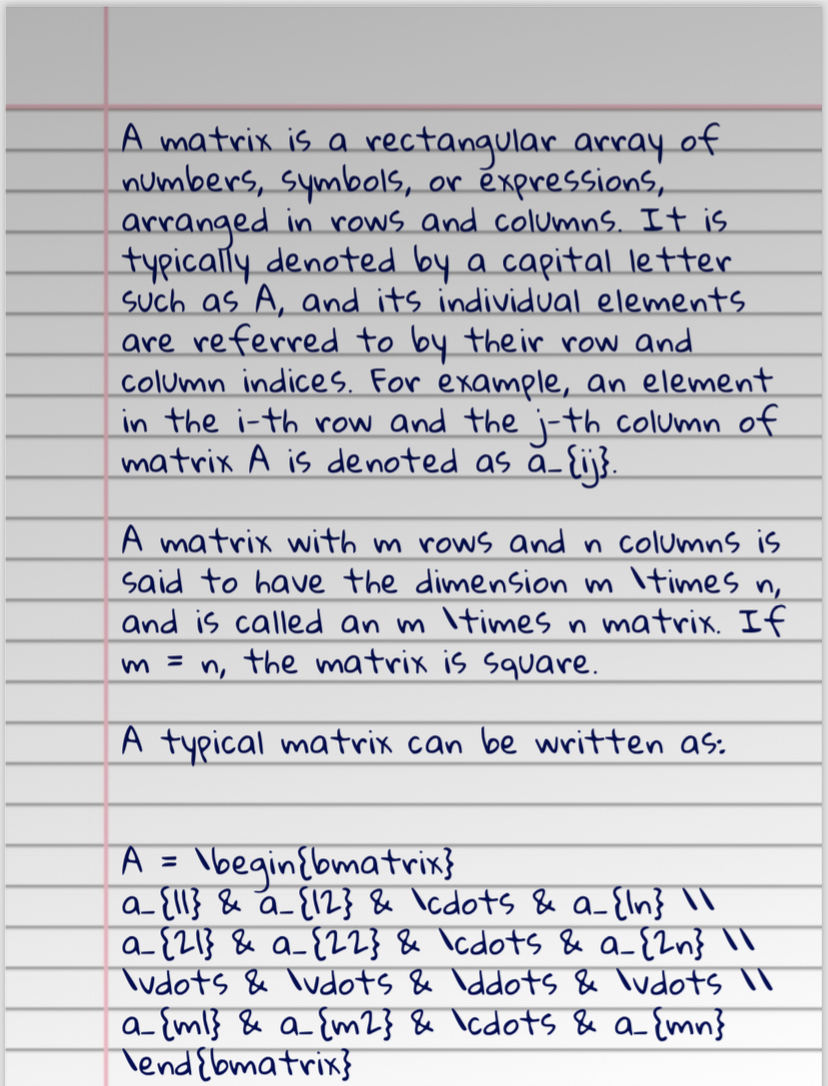 A matrix is a rectangular array of
numbers, symbols, or expressions,
arranged in rows and columns. It is
typically denoted by a capital letter
such as A, and its individual elements
are referred to by their row and
column indices. For example, an element
in the i-th row and the j-th column of
matrix A is denoted as a_{ij}.
A matrix with m rows and n columns is
said to have the dimension m \times n,
and is called an m \times n matrix. If
m = n, the matrix is square.
A typical matrix can be written as:
A = \begin{bmatrix}
a_{11} & a_{12} & \cdots & a_{1n} \\
a_{21} & a_{22} & \cdots & a_{2n} \\
\vdots & \vdots & \ddots & \vdots \\
a_{m1} & a_{m2} & \cdots & a_{mn}
\end{bmatrix}